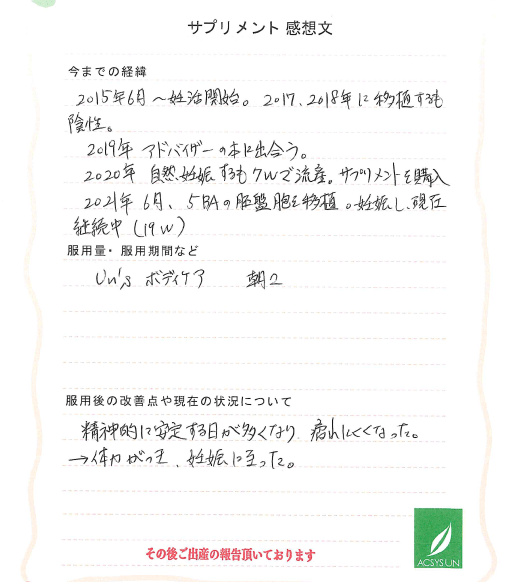 サプリメント 感想文
今までの経緯
2015年6月〜妊活開始。2017、2018年に移植するも
陰性。
2019年 アドバイザーの本に出会う。
2020年 自然妊娠するも7Wで流産。サプリメントを購入
2021年 6月、5BAの胚盤胞を移植。妊娠し、現在
継続中(19W)
服用量・服用期間など
Un's ボディケア 朝2
服用後の改善点や現在の状況について
精神的に安定する日が多くなり、疲れにくくなった。
→体力がつき、妊娠に至った。
その後ご出産の報告頂いております
ACSYSUN